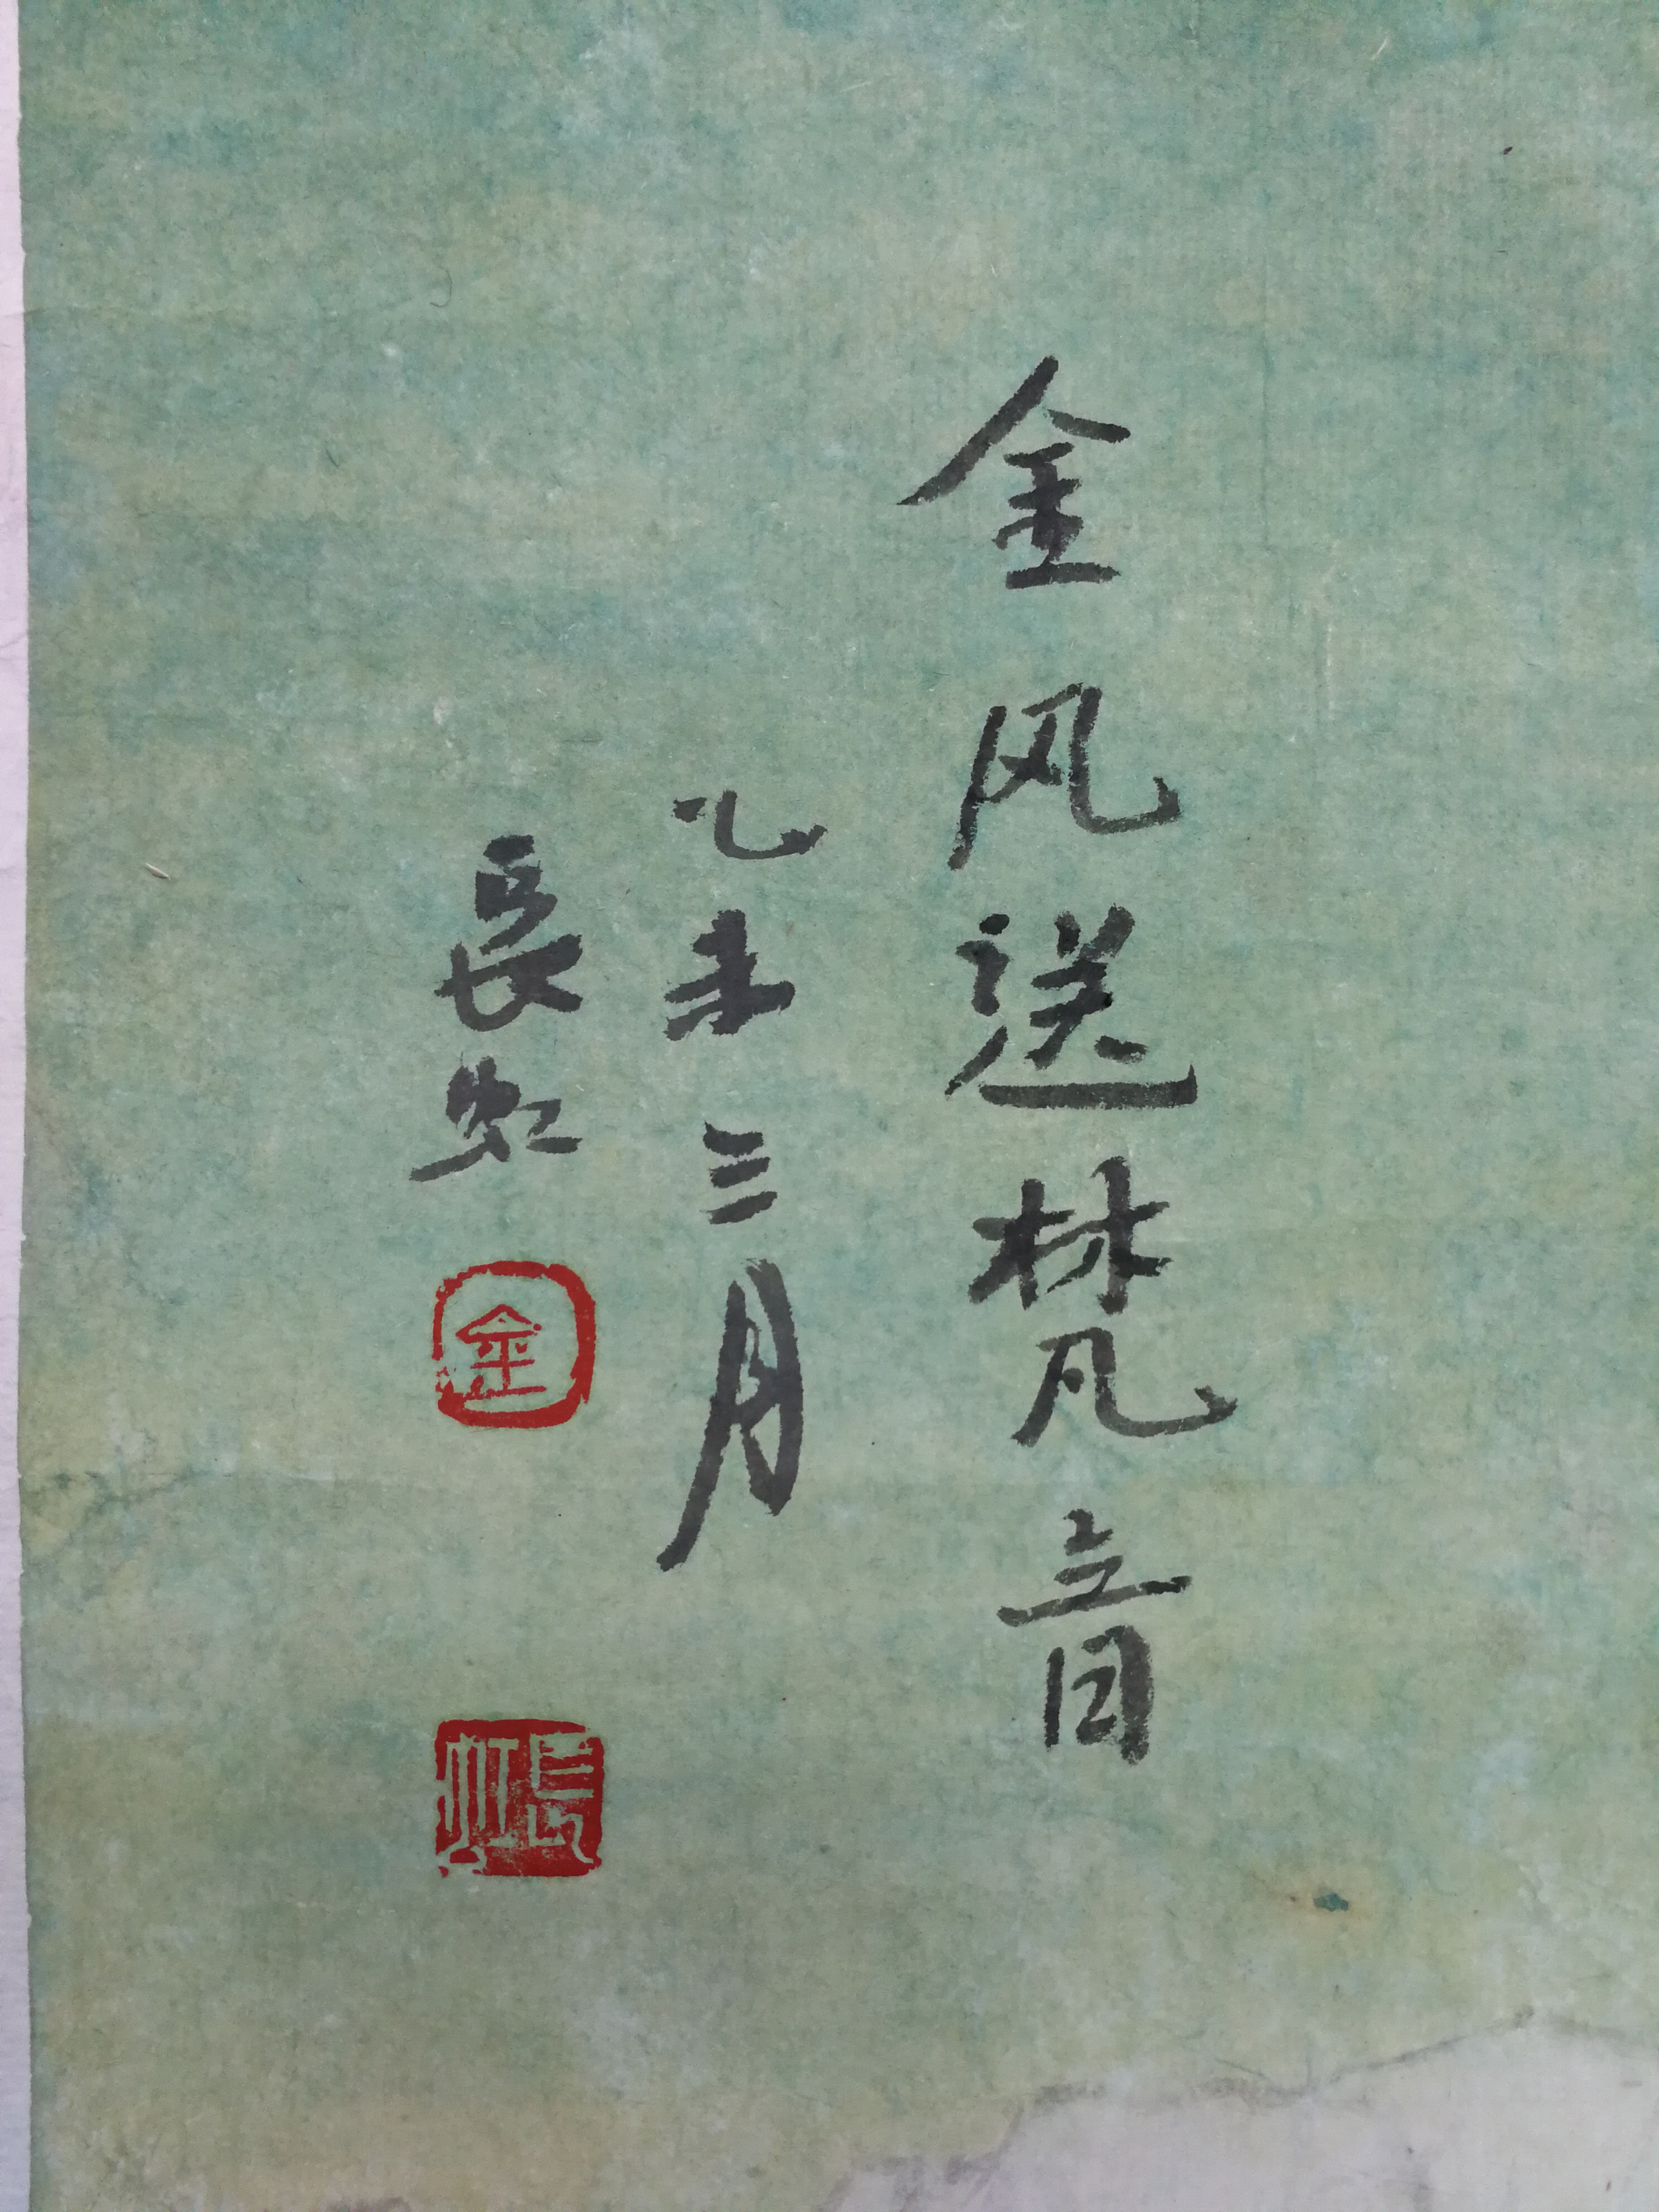 金风送梵音
乙未三月
長虹
金
長虹